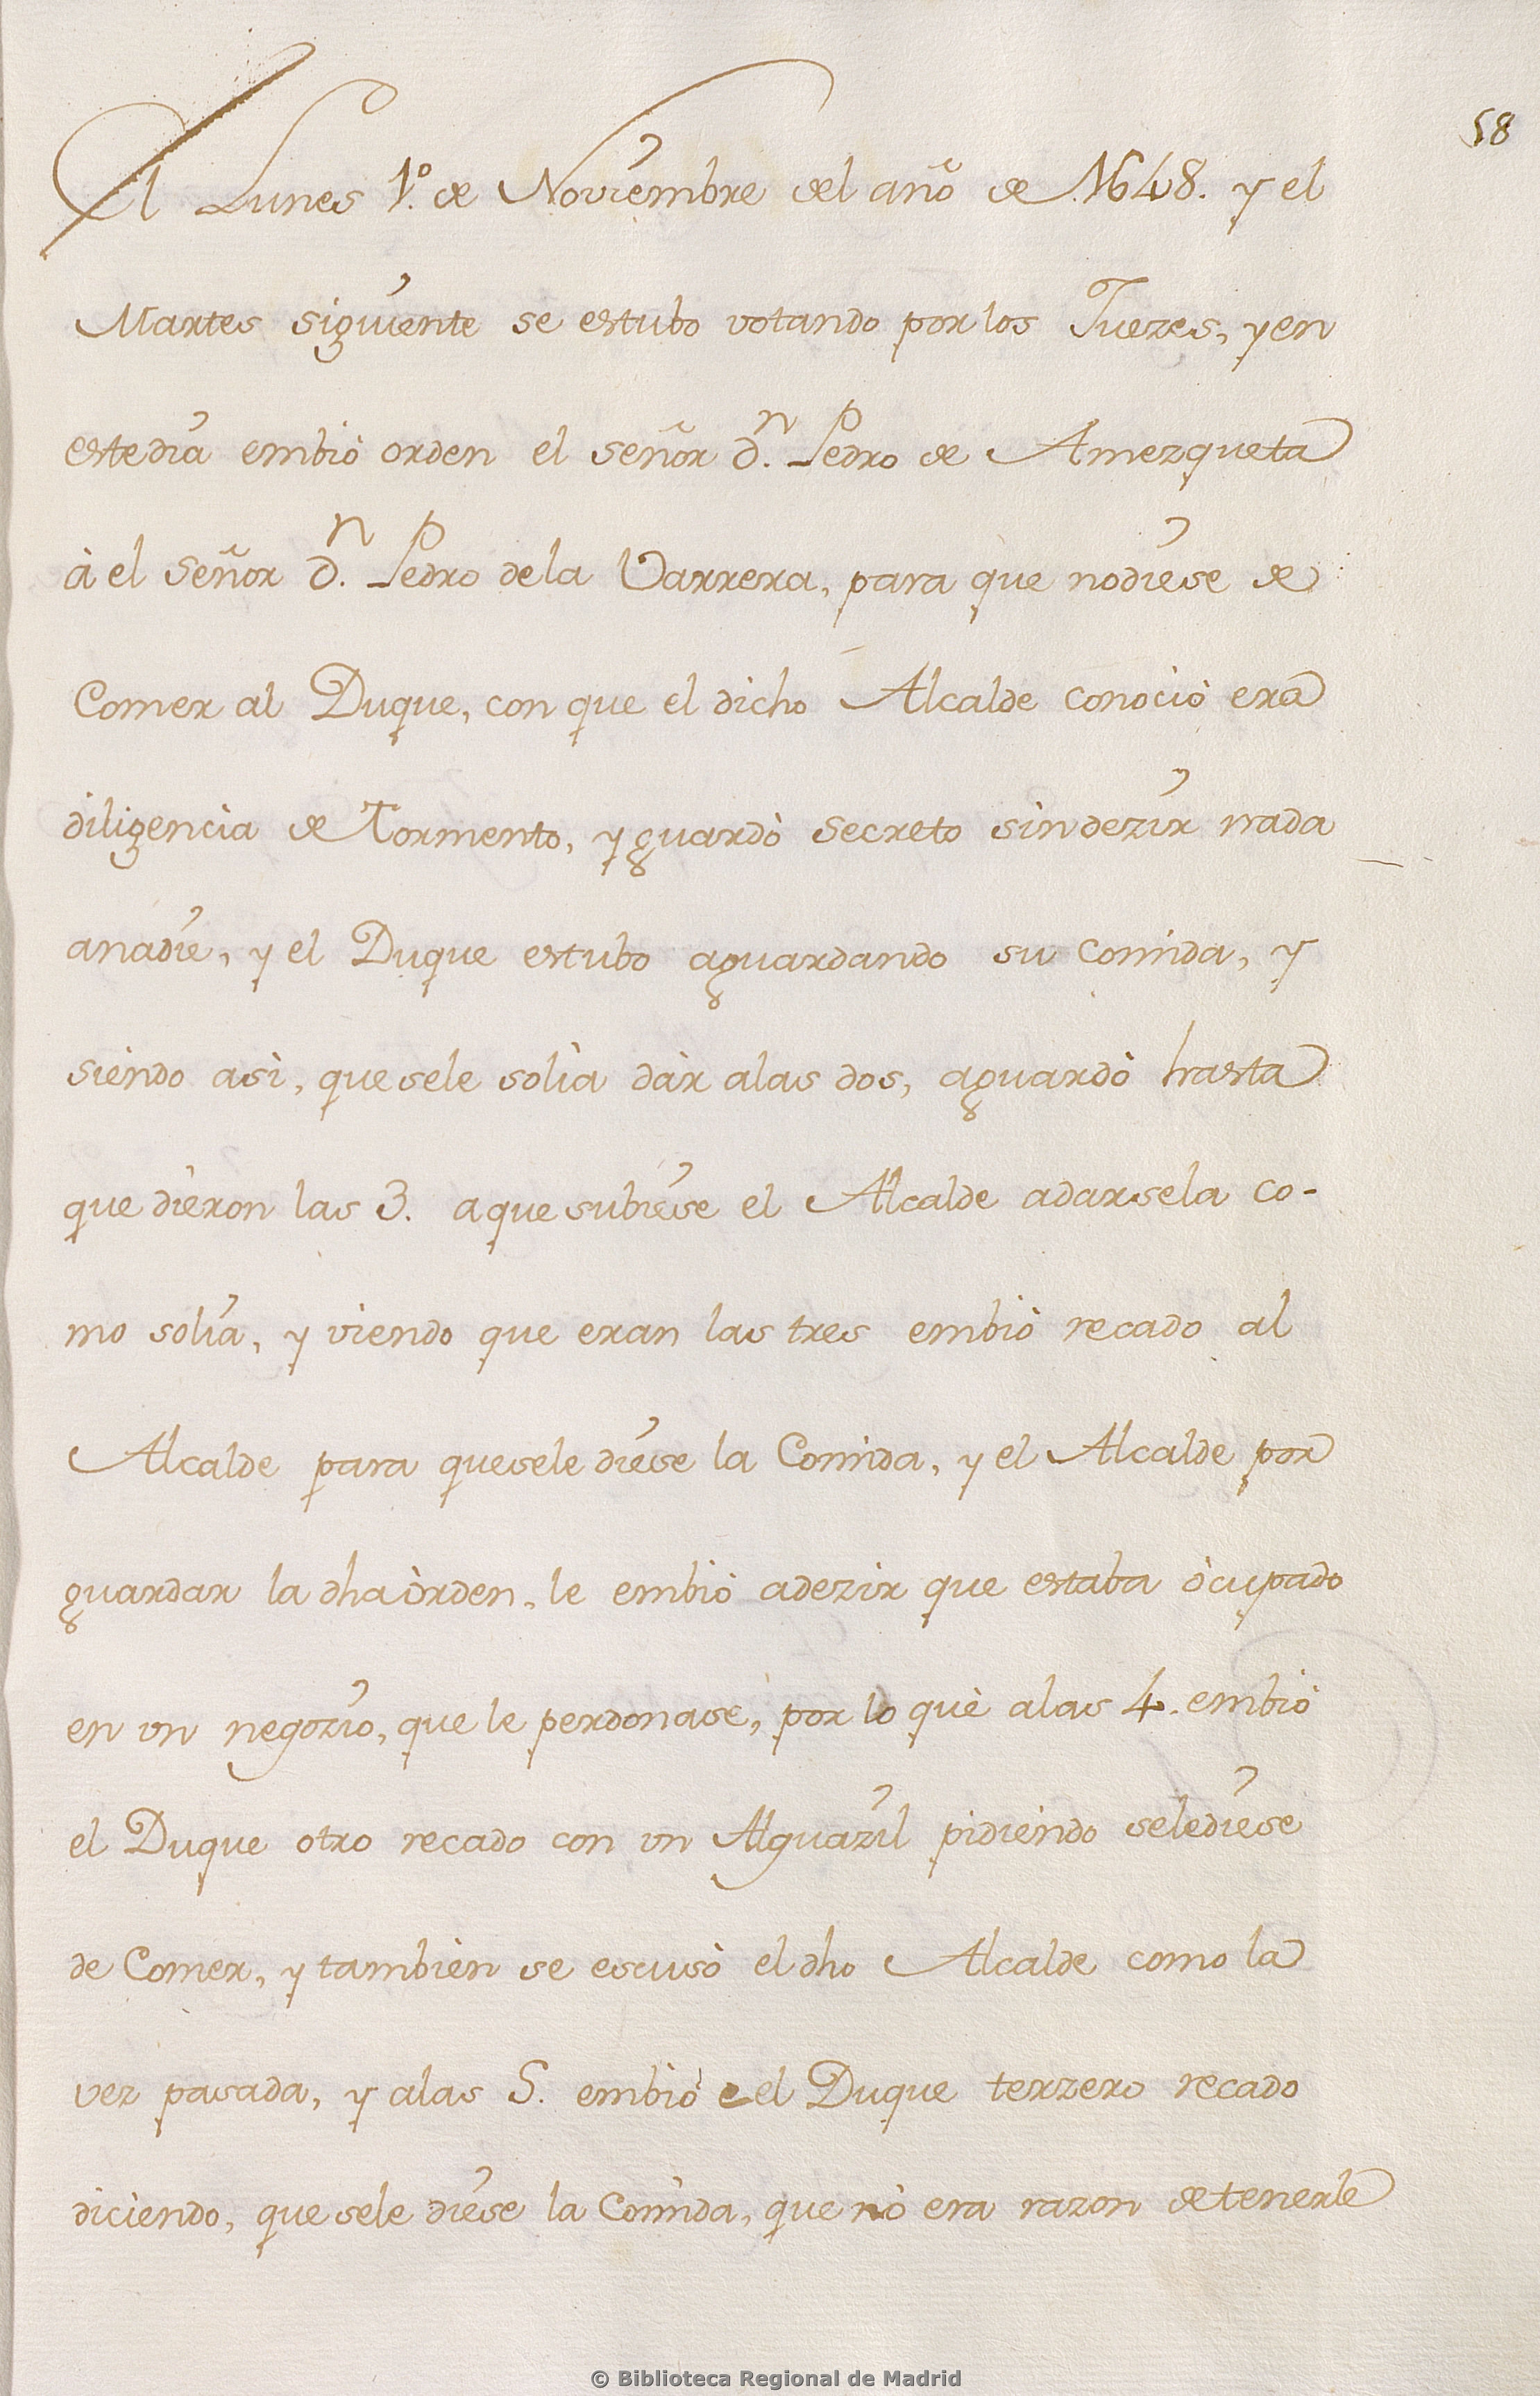 58
El Lunes 1.º de Noviembre del año de 1648. y el
Martes siguiente se estubo votando por los Juezes, y en
estedia embiò orden el señor d.ⁿ Pedro de Amezqueta
à el señor d.ⁿ Pedro dela Varrera, para que nodiese de
Comer al Duque, con que el dicho Alcalde conociò era
diligencia de Tormento, y guardò secreto sin dezir nada
anadie, y el Duque estubo aguardando su comida, y
siendo asi, que sele solia dàr alas dos, aguardò hasta
que dieron las 3. aque subiese el Alcalde adarsela co-
mo solia, y viendo que eran las tres embiò recado al
Alcalde para quesele diese la Comida, y el Alcalde por
guardar la dha òrden, le embiò adezir que estaba òcupado
en vn negozio, que le perdonase, por lo què alas 4. embiò
el Duque otro recado con vn Alguazil pidiendo selediese
de Comer, y tambien se escusò el dho Alcalde como la
vez pasada, y alas 5. embiò el Duque terzero recado
diciendo, que sele diese la Comida, que nò era razon detenerle
© Biblioteca Regional de Madrid